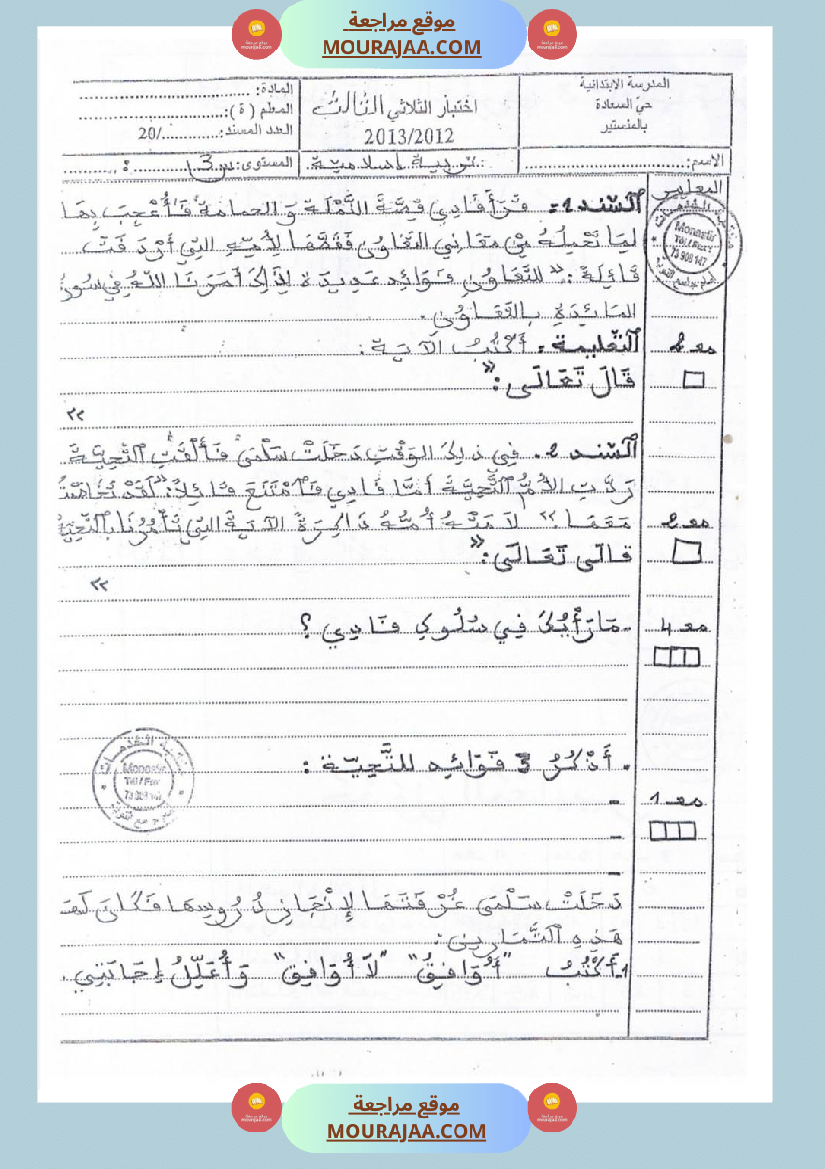 موقع مراجعة
MOURAJAA.COM
المدرسة الابتدائية
حيّ السعادة
بالمنستير
اختبار الثلاثي الثالث
2013/2012
المادة: ........
المعلم ( ة ): ........
العدد المسند: ......../20
الاسم: ........
تربية إسلامية
المستوى: س 3
المعايير
السّند 1: قَرَأَ فَادِي قِصَّةَ النَّمْلَةِ وَ الحمامة فَأُعْجِبَ بِهَا
لِمَا تَحْمِلُهُ مِنْ مَعَانِي التَّعَاوُنِ فَقَصَّهَا لِأُمِّهِ التِي أَرْدَفَتْ
قَائِلَة :« للتَّعَاوُنِ فَوَائِد عَدِيدَة لِذَلِكَ أَمَرَنَا اللّهُ فِي سُورَ
المَائِدَةِ بِالتَّعَاوُنِ.
التّعليمة : أَكْتُبُ الآيَة :
مع 2
قَالَ تَعَالَى :«
»
السّند 2. فِي ذلِكَ الوَقْتِ دَخَلَتْ سَلْمَى فَأَلْقَتْ التَّحِيَّةَ
رَدَّتِ الأُمُّ التَّحِيَّةَ أَمَّا فَادِي فَامْتَنَعَ قَائِلاً:« لَقَدْ تَخَاصَمْتُ
مَعَهَا.» لاَمَتْهُ أُمُّهُ ذَاكِرَةً الآيَةَ التِي تَأْمُرُنَا بِالتَّحِيَّةِ
مع 2
قَالَ تَعَالَى :«
»
- مَا رَأْيُكَ فِي سُلُوكِ فَادِي ؟
مع 4
. أَذْكُرُ 3 فَوَائِد للتَّحِيَّة :
-
مع 1
-
-
دَخَلَتْ سَلْمَى غُرْفَتَهَا لإِنْجَازِ دُرُوسِهَا فَكَانَتْ
هَذِهِ التَّمَارِين :
1- أَكْتُبُ "أُوَافِقُ" "لاَ أُوَافِق" وَأُعَلِّلُ إِجَابَتِي.
Monastir
Tél / Fax :
73 908 147
Monastir
Tél / Fax :
73 908 147
موقع مراجعة
MOURAJAA.COM